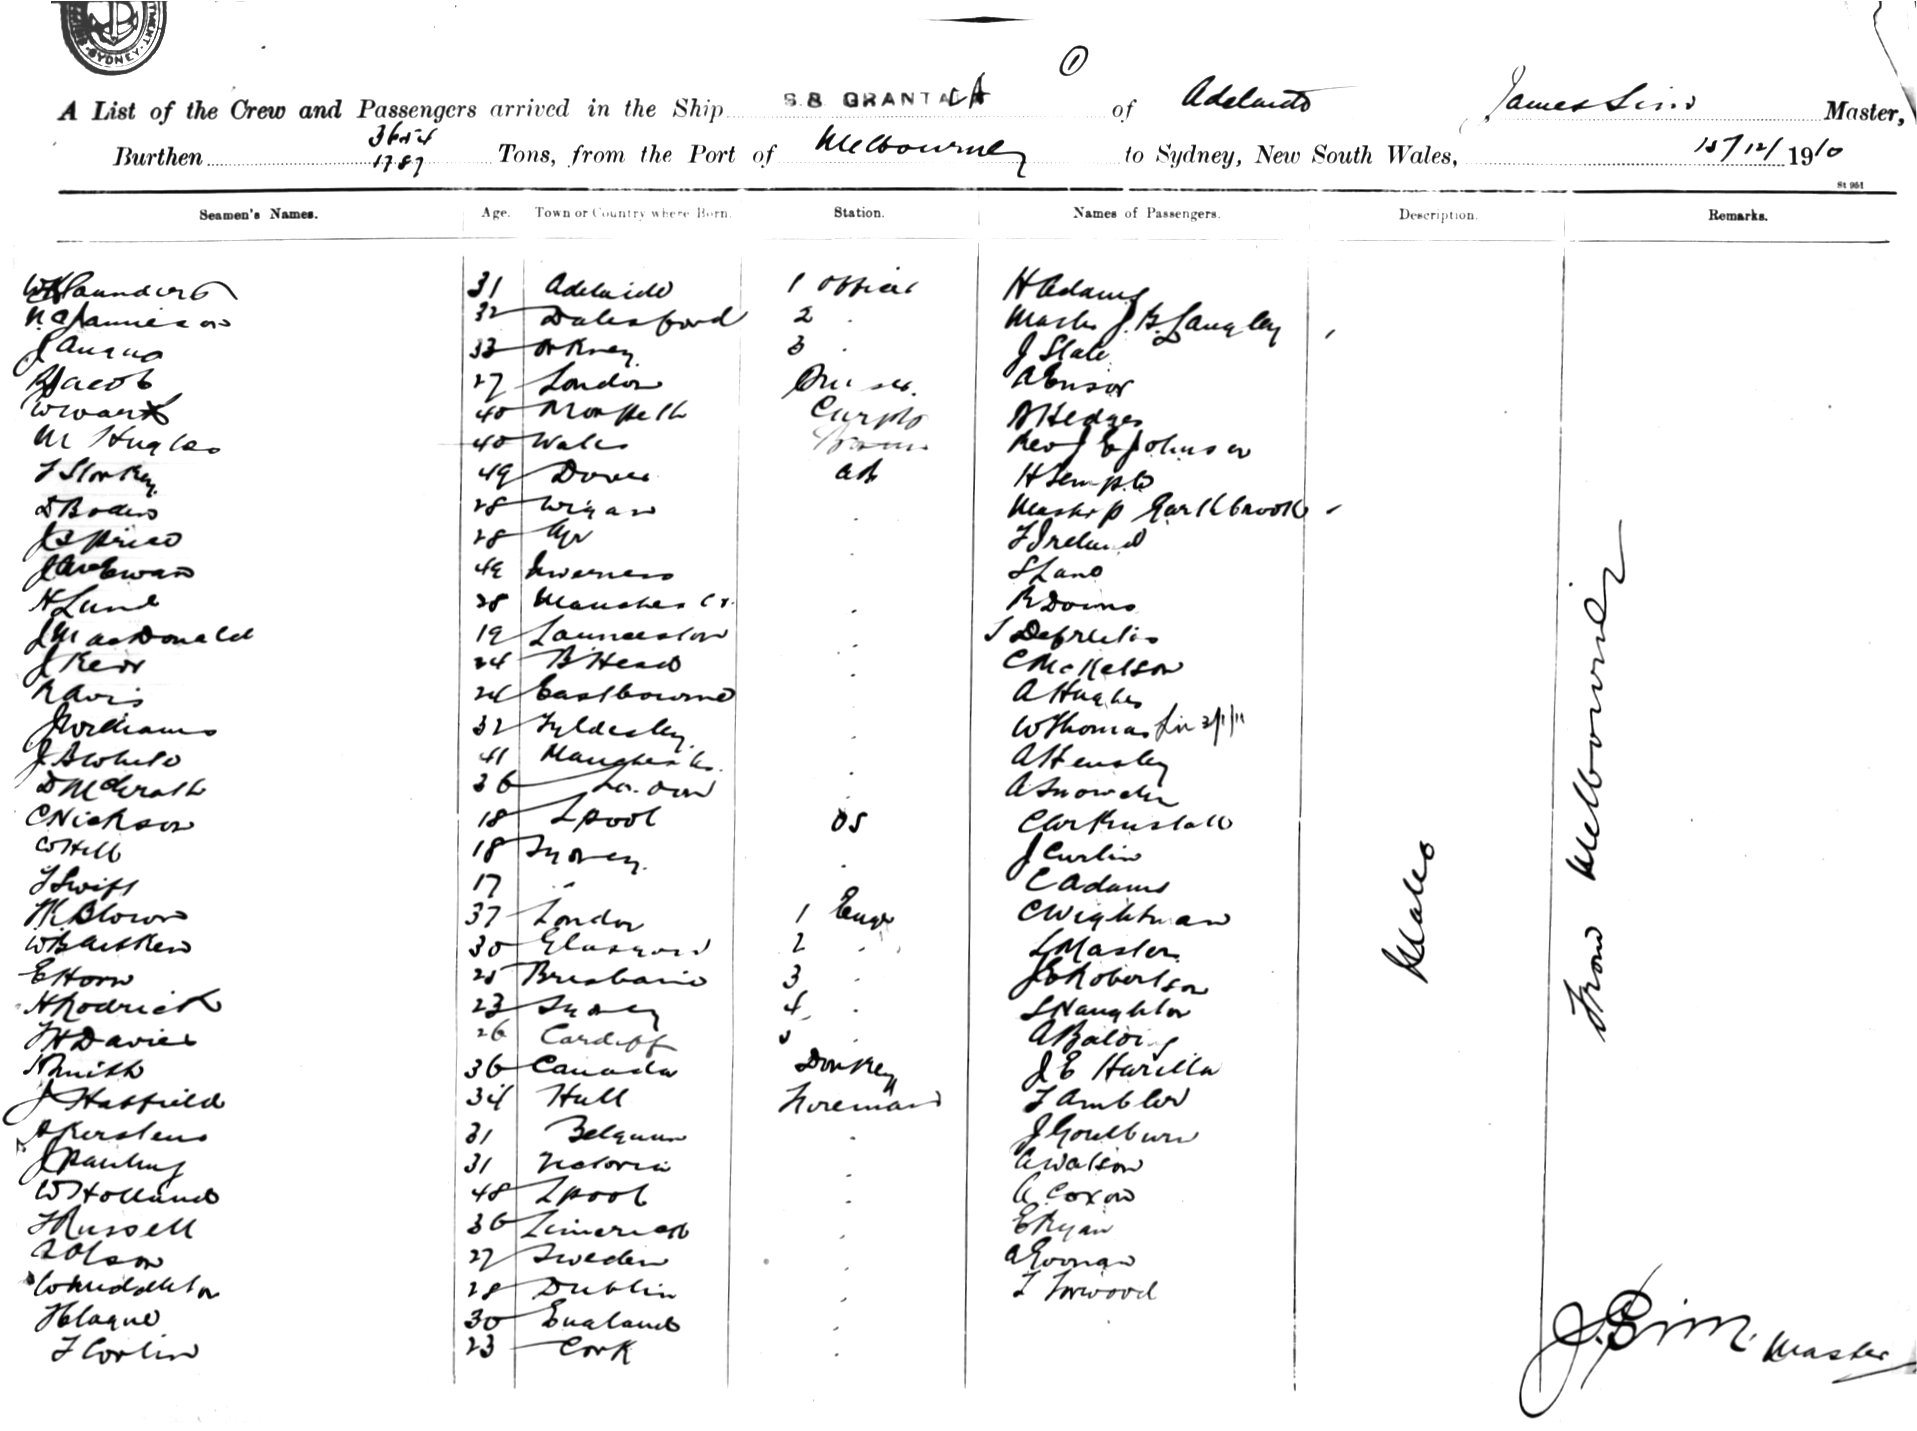 SYDNEY
1
A List of the Crew and Passengers arrived in the Ship S.S. GRANTALA of Adelaide James Sim Master,
Burthen 3654 1787 Tons, from the Port of Melbourne to Sydney, New South Wales, 15/12/ 1910
St 951
Seamen's Names. Age. Town or Country where Born. Station. Names of Passengers. Description. Remarks.
W H Saunders 31 Adelaide 1 Officer H Adams
Jamieson 32 Dalesford 2 . Master J. B. Langley
J Angus 33 Orkney 3 . J Slate
R Jacob 27 London Purser. A Ensor
W Wark 40 Morpeth Carptr A Hedges
M Hughes 40 Wales Rev J E Johnson
F Storkey 49 Dover ab H Semple
D Boden 28 Wigan . Master P
J S Price 28 Ayr . F Ireland
J McEwan 49 Inverness . S Lane
H Lund 28 Manches tr. . R Downs
J MacDonald 19 Launceston . Defrietis
J Kerr 24 B'Head . C McKelson
R Avis 24 Eastbourne . A Hughes
J Williams 32 Tyldesley . W Thomas
J A White 41 Manchester . A Hensley
D McGrath 36 London . A Snowden
C Nickson 18 Lpool OS
W Hill 18 Sydney . J Curlin
F Swift 17 " C Adams
Blown 37 London 1 Engr C Wightman
W B Aitken 30 Glasgow 2 . L Master
E Horn 25 Brisbane 3 . J E Robertson
H Rodrick 23 Sydney 4 . S Naughton
F H Davies 26 Cardiff 5 . A Balding
Smith 36 Canada Donkey J E Harilla
J Hatfield 34 Hull Foreman F Ambler
A Kerstens 31 Belgium . J Goulburn
J Pauling 31 Victoria . A Watson
W Holland 48 Lpool . A Coxon
F Russell 36 Limerick . E Ryan
A Olson 27 Sweden . A Goonan
W Middleton 28 Dublin . F Forwood
H Clague 30 England .
F Corlin 23 Cork .
Males
From Melbourne
J. Sim. Master